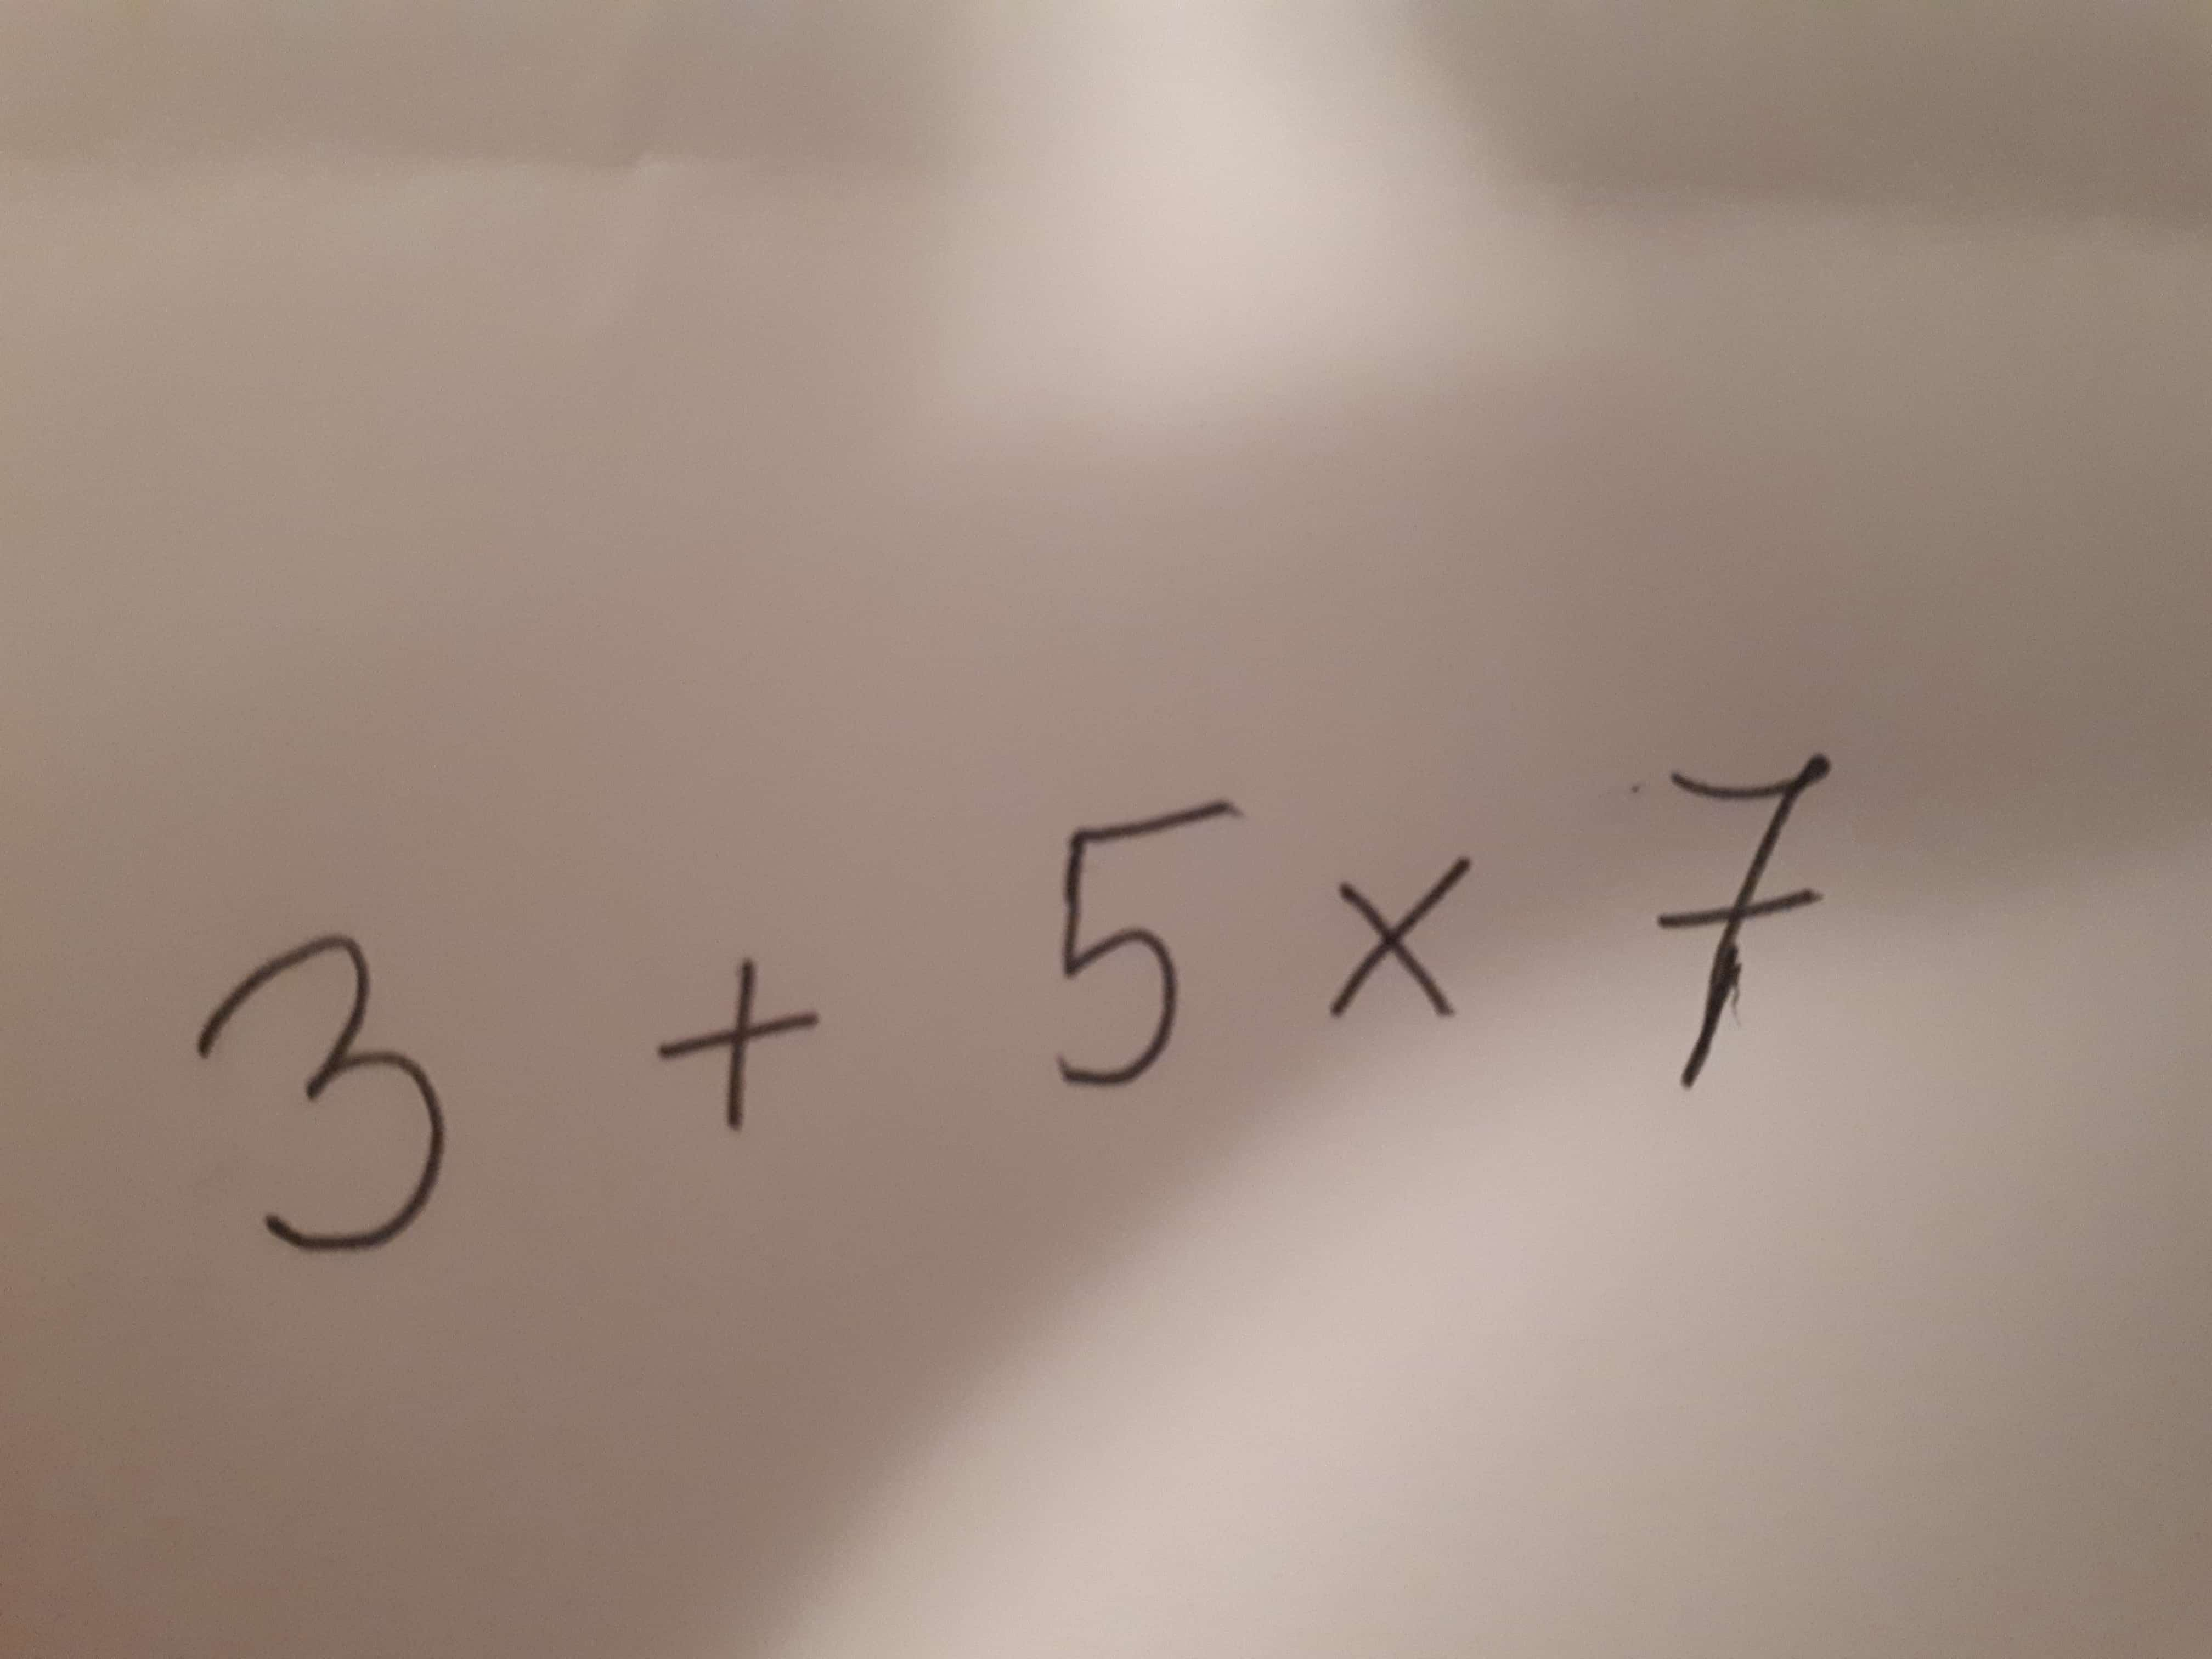 3 + 5 × 7